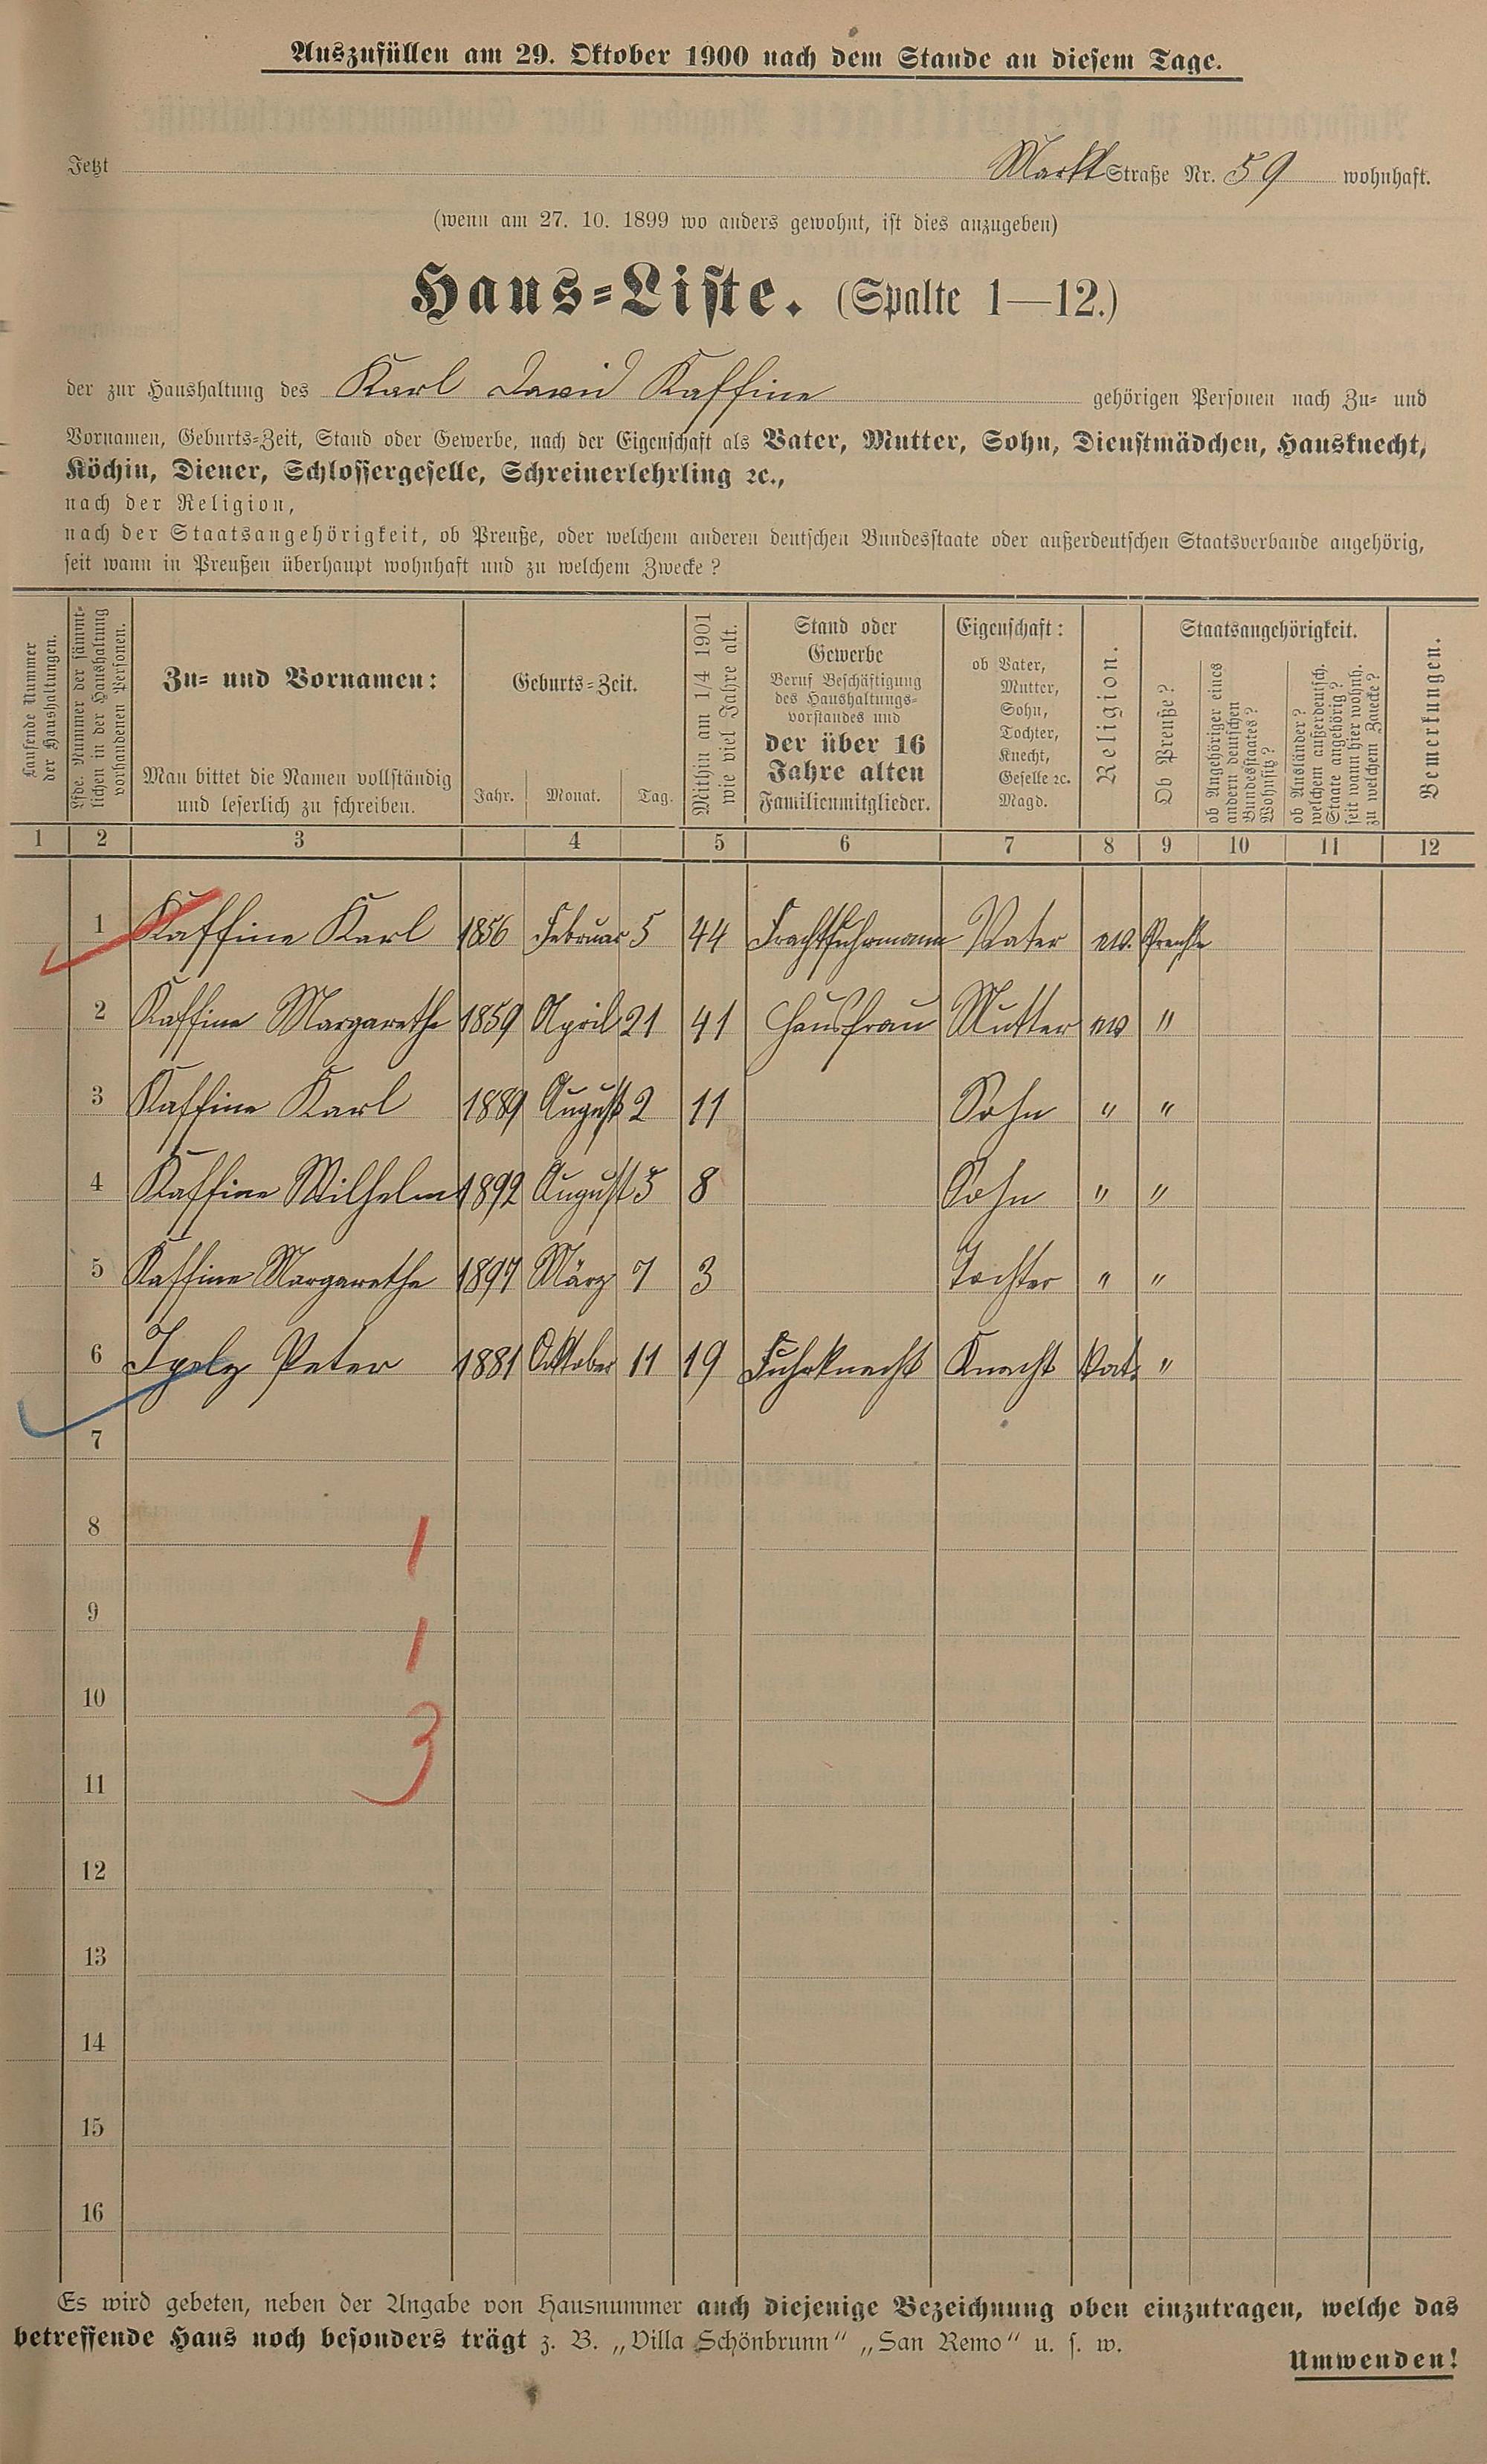 Auszufüllen am 29. Oktober 1900 nach dem Stande an diesem Tage.
Jetzt Markt Straße Nr. 59 wohnhaft.
(wenn am 27. 10. 1899 wo anders gewohnt, ist dies anzugeben)
Haus-Liste. (Spalte 1—12.)
der zur Haushaltung des Karl David Kaffine gehörigen Personen nach Zu- und
Vornamen, Geburts-Zeit, Stand oder Gewerbe, nach der Eigenschaft als Vater, Mutter, Sohn, Dienstmädchen, Hausknecht,
Köchin, Diener, Schlossergeselle, Schreinerlehrling ꝛc.,
nach der Religion,
nach der Staatsangehörigkeit, ob Preuße, oder welchem anderen deutschen Bundesstaate oder außerdeutschen Staatsverbande angehörig,
seit wann in Preußen überhaupt wohnhaft und zu welchem Zwecke?
Laufende Nummer
der Haushaltungen.
Lfde. Nummer der sämmt-
lichen in der Haushaltung
vorhandenen Personen.
Zu- und Vornamen:
Man bittet die Namen vollständig
und leserlich zu schreiben.
Geburts-Zeit.
Jahr. Monat. Tag.
Mithin am 1/4 1901
wie viel Jahre alt.
Stand oder
Gewerbe
Beruf Beschäftigung
des Haushaltungs-
vorstandes und
der über 16
Jahre alten
Familienmitglieder.
Eigenschaft:
ob Vater,
Mutter,
Sohn,
Tochter,
Knecht,
Geselle ꝛc.
Magd.
Religion.
Staatsangehörigkeit.
Ob Preuße?
ob Angehöriger eines
andern deutschen
Bundesstaates?
Wohnsitz?
ob Ausländer?
welchem außerdeutsch.
Staate angehörig?
seit wann hier wohnh.
zu welchem Zwecke?
Bemerkungen.
1 2 3 4 5 6 7 8 9 10 11 12
1 Kaffine Karl 1856 Februar 5 44 Frachtfuhrmann Vater ev. Preuße
2 Kaffine Margarethe 1859 April 21 41 Hausfrau Mutter ev "
3 Kaffine Karl 1889 August 2 11 Sohn " "
4 Kaffine Wilhelm 1892 August 5 8 Sohn " "
5 Kaffine Margarethe 1897 März 7 3 Tochter " "
6 Peter 1881 Oktober 11 19 Fuhrknecht Knecht kat. "
7
8
1
9
1
10
3
11
12
13
14
15
16
Es wird gebeten, neben der Angabe von Hausnummer auch diejenige Bezeichnung oben einzutragen, welche das
betreffende Haus noch besonders trägt z. B. „Villa Schönbrunn“ „San Remo“ u. s. w.
Umwenden!